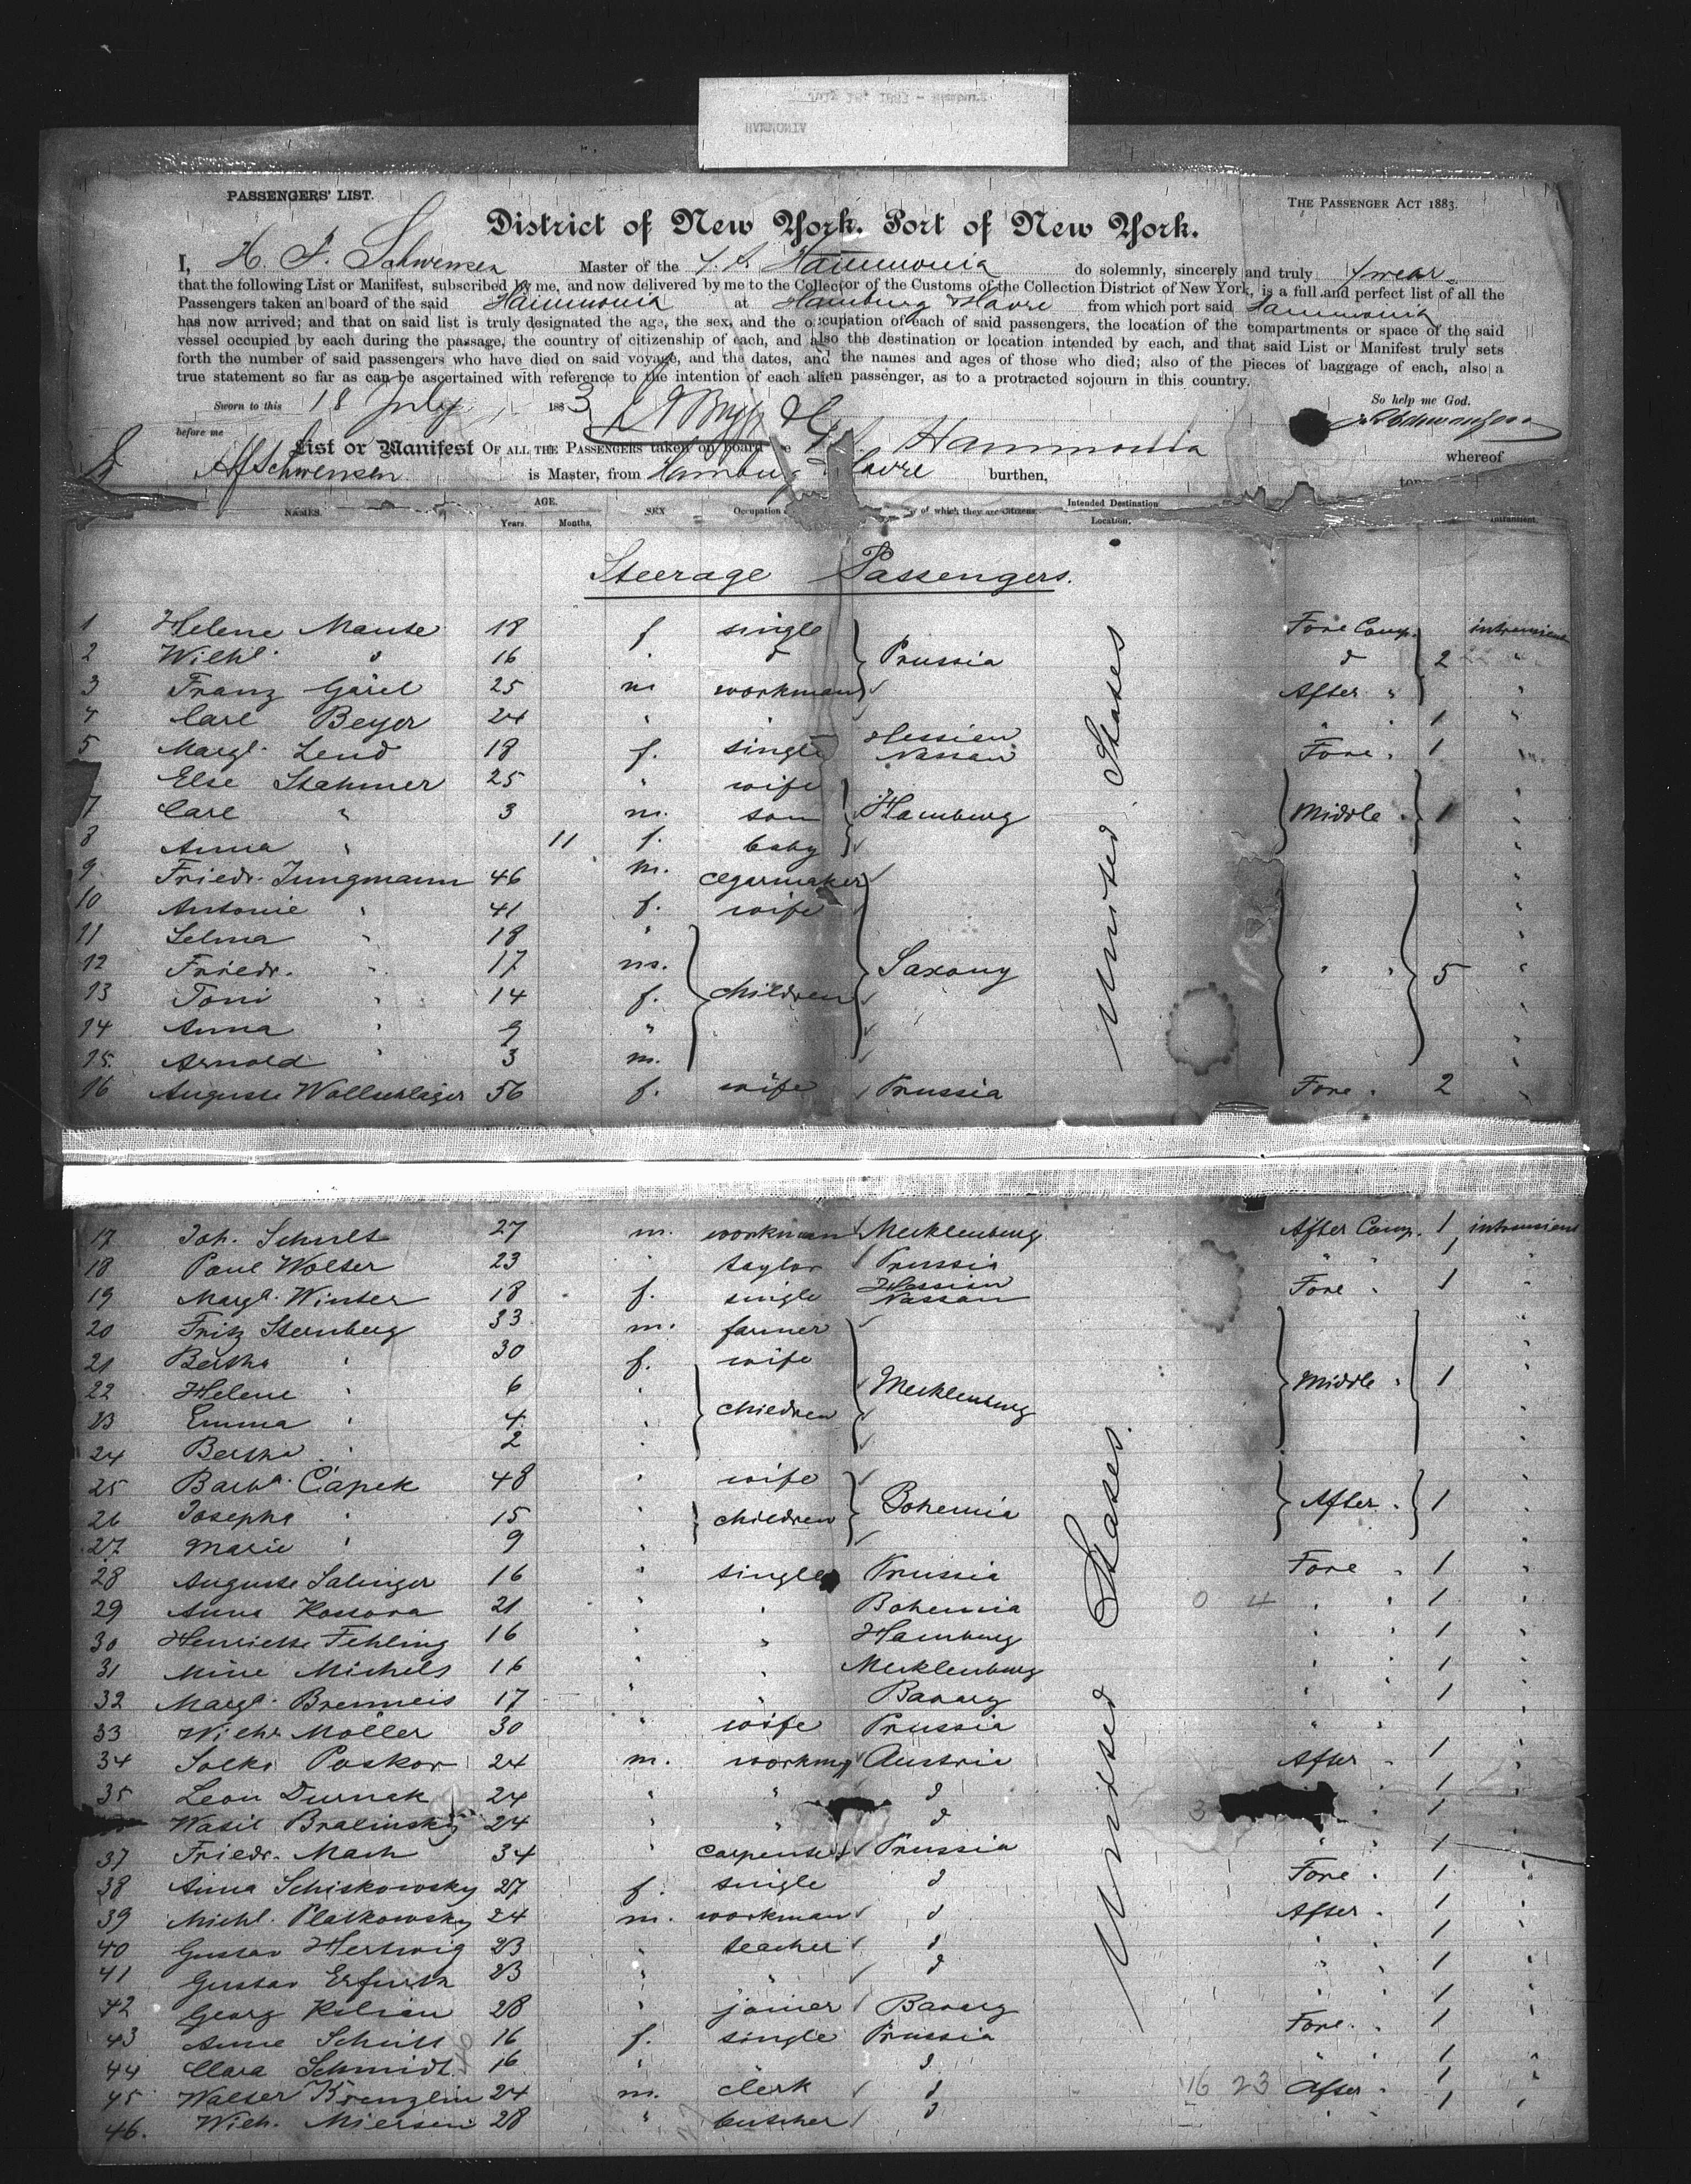 PASSENGERS' LIST.
THE PASSENGER ACT 1883.
District of New York, Port of New York.
I, H. F. Schwensen Master of the S. S. Hammonia do solemnly, sincerely and truly swear
that the following List or Manifest, subscribed by me, and now delivered by me to the Collector of the Customs of the Collection District of New York, is a full and perfect list of all the
Passengers taken an board of the said Hammonia at Hamburg & Havre from which port said Hammonia
has now arrived; and that on said list is truly designated the age, the sex, and the occupation of each of said passengers, the location of the compartments or space of the said
vessel occupied by each during the passage, the country of citizenship of each, and also the destination or location intended by each, and that said List or Manifest truly sets
forth the number of said passengers who have died on said voyage, and the dates, and the names and ages of those who died; also of the pieces of baggage of each, also a
true statement so far as can be ascertained with reference to the intention of each alien passenger, as to a protracted sojourn in this country.
Sworn to this 18 July 1883 So help me God.
before me
List or Manifest OF ALL THE PASSENGERS taken on board Hammonia whereof
HFSchwensen is Master, from Hamburg & Havre burthen,
NAMES. AGE. Years. Months. SEX Occupation of which they are citizens. Intended Destination Location.
Steerage Passengers.
1 Helene Manse 18 f single Fore Comp. intransient
2 Wilhl. d 16 " d Prussia d 2 "
3 Franz Gärel 25 m workman After " "
4 Carl Beyer 24 " " " 1 "
5 Margt. Lend 18 f. single Hessian Nassau Fore " 1 "
Else Stahmer 25 " wife "
7 Carl " 3 m. son Hamburg Middle " 1 "
8 Anna " 11 f. baby "
9. Friedr. Jungmann 46 m. cegarmaker "
10 Antonie " 41 f. wife "
11 Selma " 18 " "
12 Friedr. " 17 m. Saxony " " 5 "
13 Toni " 14 f. children "
14 Anna " 9 " "
15. Arnold " 3 m. "
16 Auguste Wollschläger 56 f. wife Prussia Fore " 2 "
United States
17 Joh. Schult 27 m. workman Mecklenburg After Comp. 1 intransient
18 Paul Wolter 23 " taylor Prussia " " 1 "
19 Margt. Winter 18 f. single Hessian Nassau Fore " 1 "
20 Fritz Sternberg 33 m. farmer "
21 Bertha " 30 f. wife "
22 Helene " 6 " Mecklenburg Middle " 1 "
23 Emma " 4 " children "
24 Bertha " 2 " "
25 Barba. Capek 48 " wife "
26 Josepha " 15 " children Bohemia After " 1 "
27 Marie " 9 " "
28 Auguste Salinger 16 " single Prussia Fore " 1 "
29 Anna Kossora 21 " " Bohemia 0 4 " " 1 "
30 Henriette Fehling 16 " " Hamburg " " 1 "
31 Mine Michels 16 " " Mecklenburg " " 1 "
32 Margt. Brenneis 17 " " Bavary " 1 "
33 Wilhe Möller 30 " wife Prussia " " "
34 Salki Poskor 24 m. workmn Austria After " 1 "
35 Leon Durnak 24 " " d " 1 "
Wasil Bralinskij 24 " " d 3 " 1 "
37 Friedr. Mach 34 " carpenter Prussia " " 1 "
38 Anna Schiskowsky 27 f. single d Fore " 1 "
39 Michl. Platkowsky 24 m. workman d After " 1 "
40 Gustav Hertwig 23 " teacher d " " 1 "
41 Gustav Erfurth 23 " " d " " 1 "
42 Georg Kilian 28 " joiner Bavary " " 1 "
43 Anna Schütt 16 f. single Prussia Fore " 1 "
44 Clara Schmidt 16 " " d " " 1 "
45 Walter Krenzlin 24 m. clerk d 16 23 After " 1 "
46. Wilh. Miersen 28 " butcher d " " 1 "
United States.